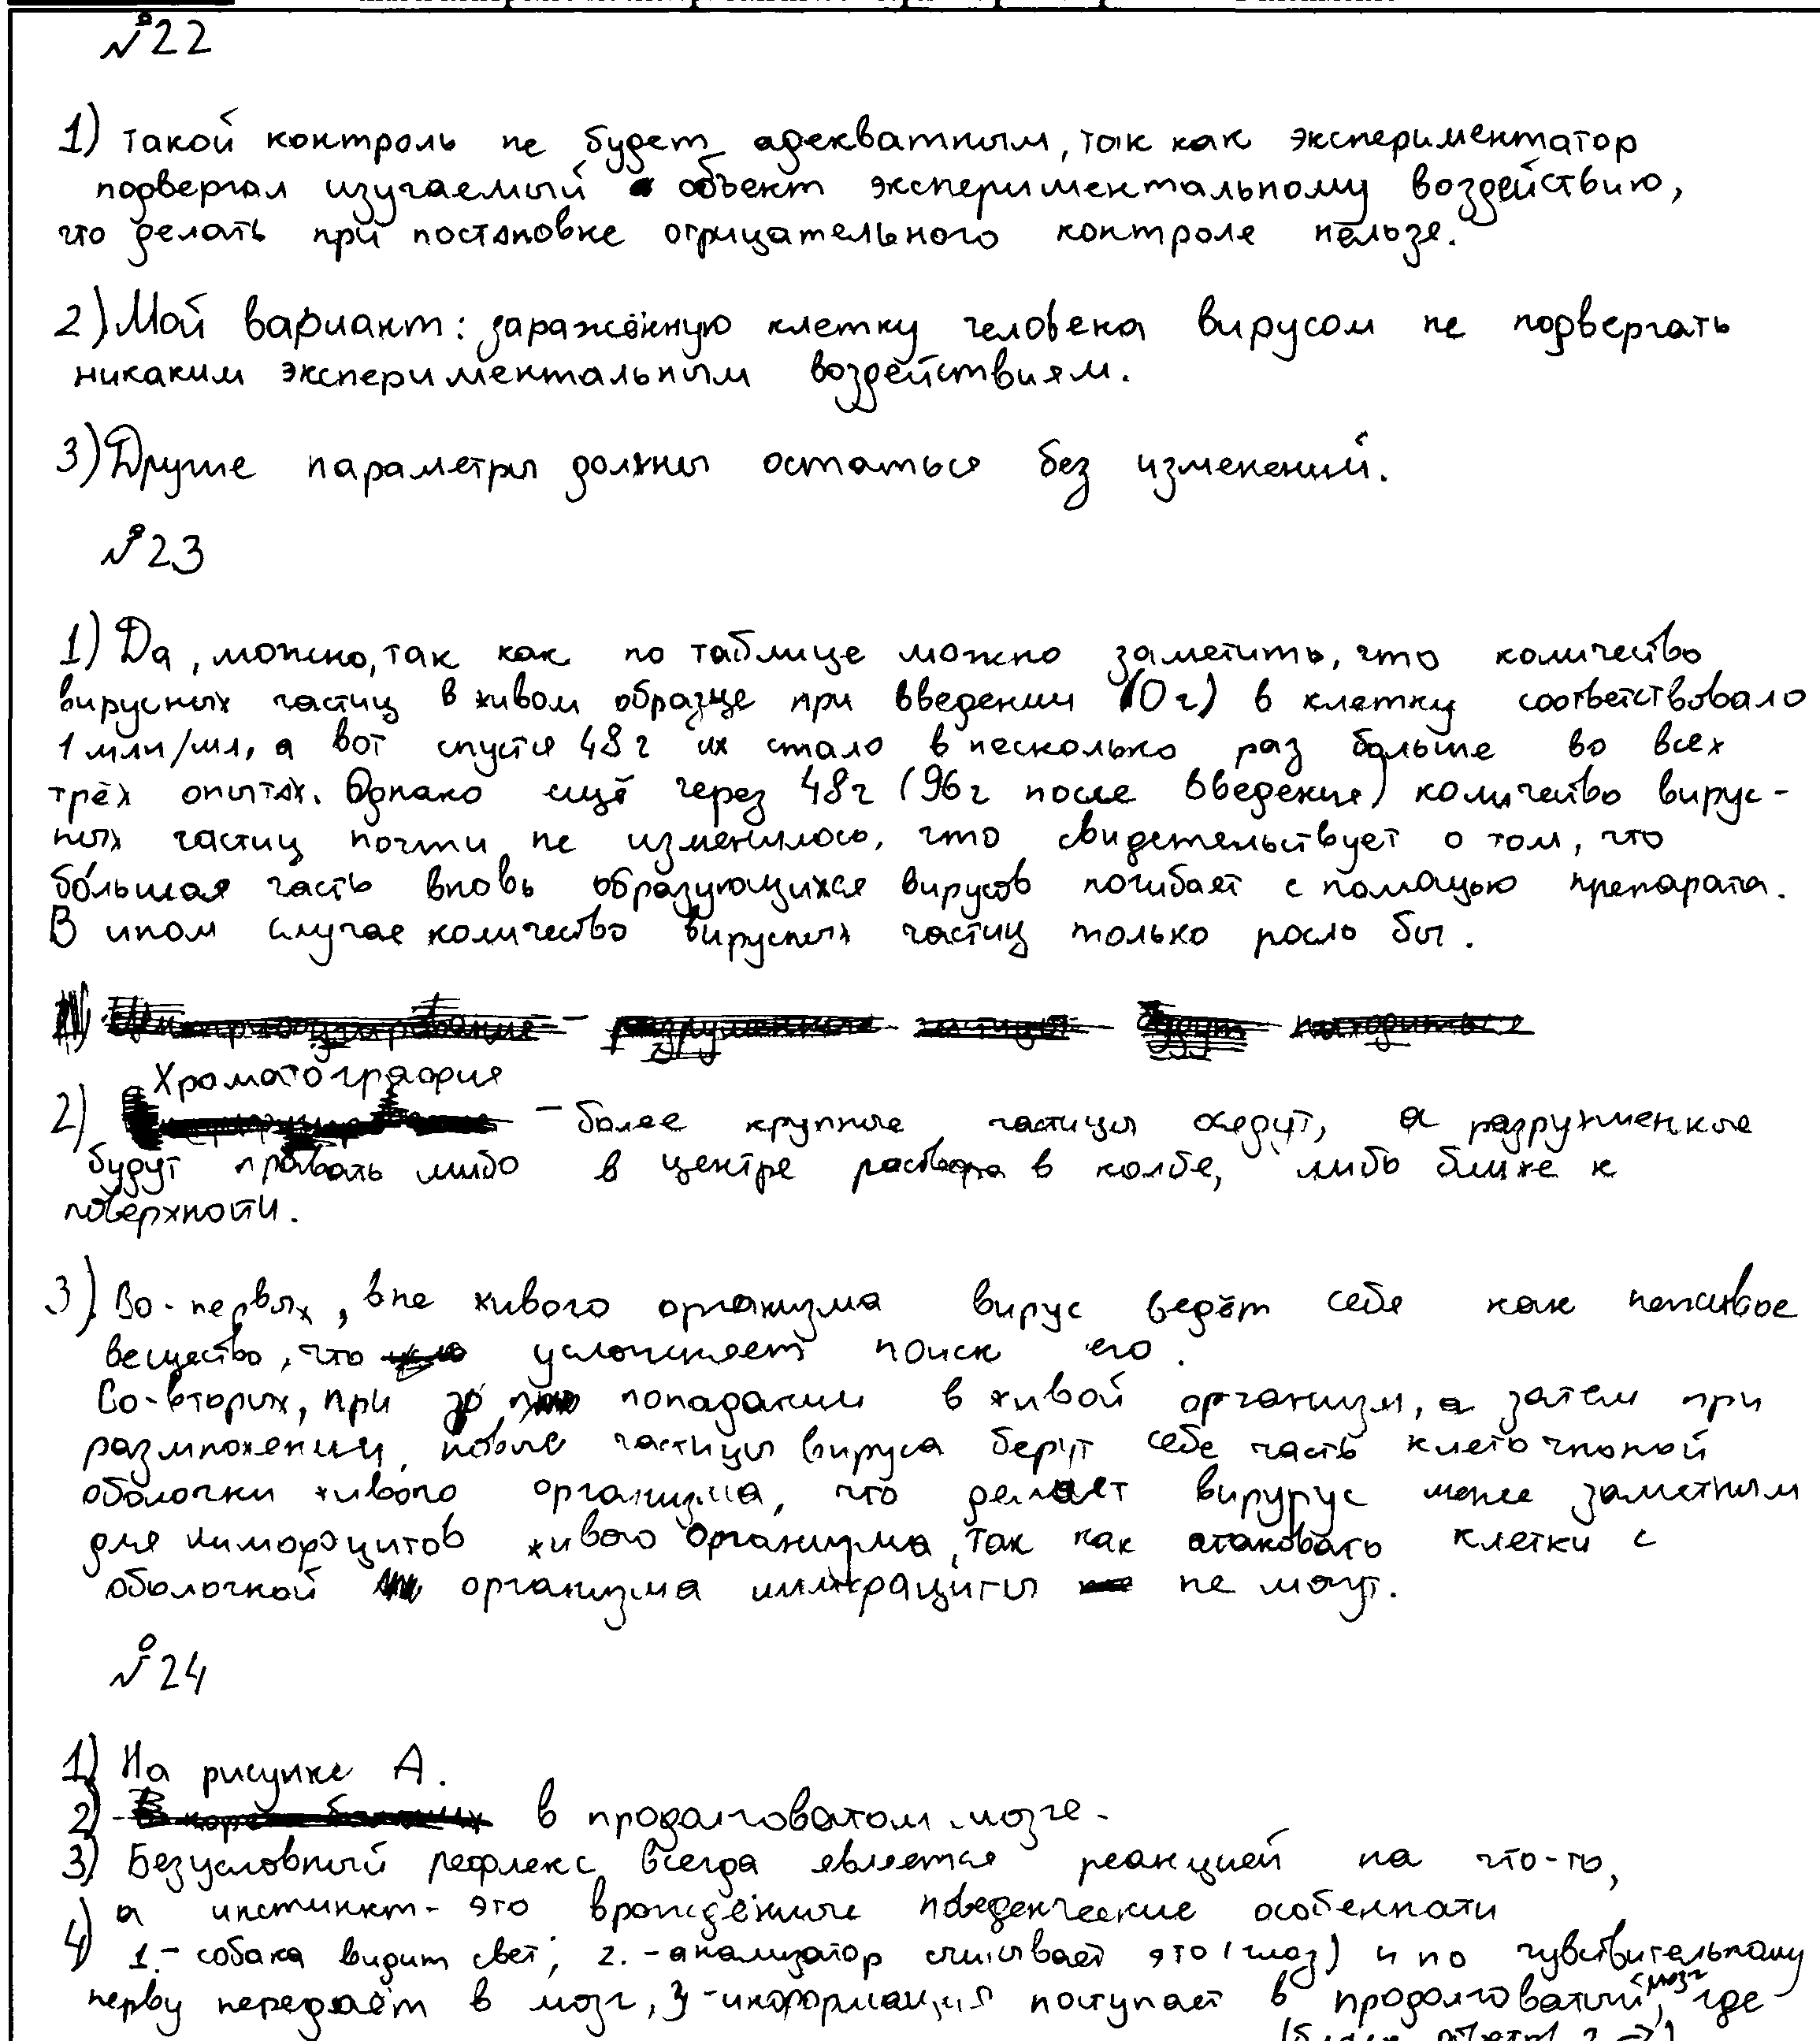 №22
1) такой контроль не будет адекватным, так как экспериментатор
подвергал изучаемый объект экспериментальному воздействию,
что делать при постановке отрицательного контроле нельзе.
2) Мой вариант: заражённую клетку человека вирусом не подвергать
никаким экспериментальным воздействием.
3) Другие параметры должны остаться без изменений.
№23
1) Да, можно, так как по таблице можно заметить, что количество
вирусных частиц в живом образце при введении (0 г) в клетку соответствовало
1 млн/мл, а вот спустя 48 г их стало в несколько раз больше во всех
трёх опытах. Однако ещё через 48г (96г после введение) количество вирус-
ных частиц почти не изменилось, что свидетельствует о том, что
бо́льшая часть вновь образующихся вирусов погибает с помощью препарата.
В ином случае количество вирусных частиц только росло бы.
Хроматография
2) - более крупные частицы осядут, а разрушенные
будут плавать либо в центре раствора в колбе, либо ближе к
поверхности.
3). Во-первых, вне живого организма вирус ведёт себя как неживое
вещество, что усложняет поиск его.
Во-вторых, при попадании в живой организм, а затем при
размножении, новые частицы вируса берут себе часть клеточноной
оболочки живого организма, что делает вирурус менее заметным
для лимфоцитов живого организма, так как атаковать клетки с
оболочкой организма не могут.
№24
1) На рисунке А.
2) в продолговатом мозге.
3) Безусловный рефлекс всегда является реакцией на что-то,
а инстинкт - это врождённые поведенческие особенности
4) 1. - собака видит свет; 2. - анализатор считывает это (глаз) и по чувствительному
нерву передаёт в мозг, 3 - информация поступает в продолговатый мозг, где